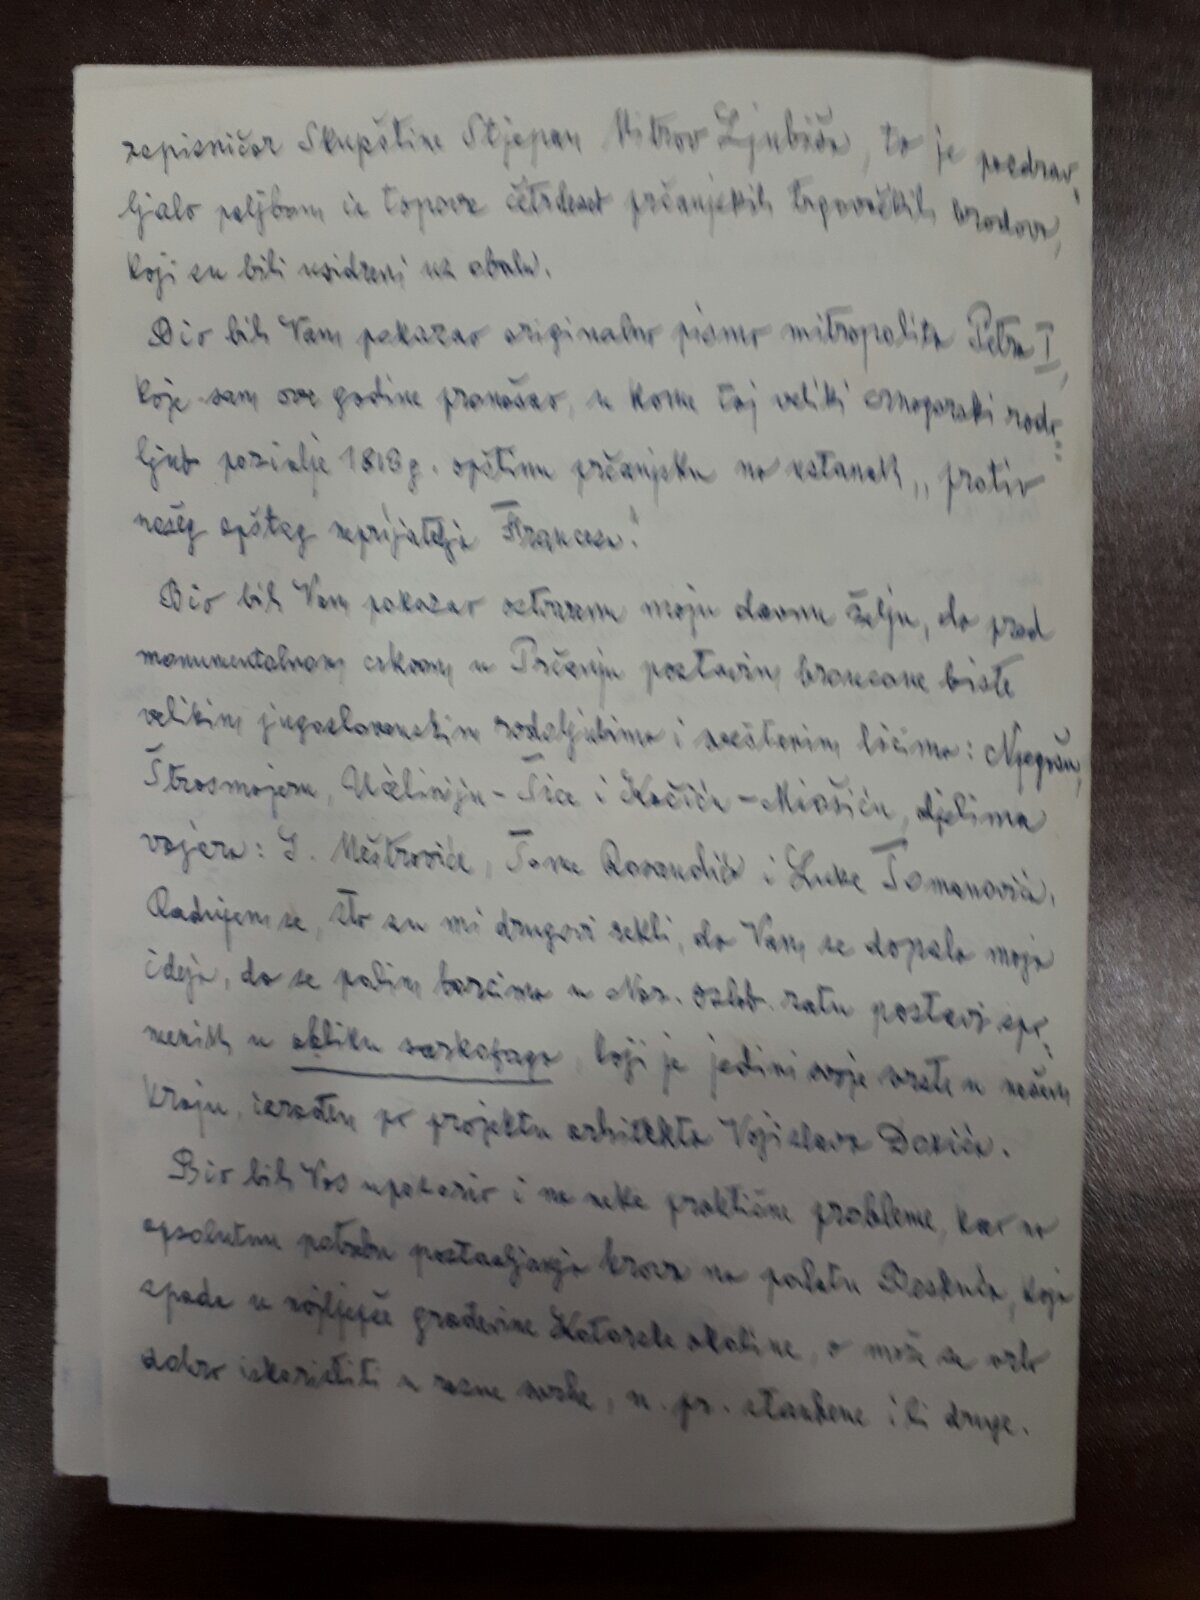 zapisničar Skupštine Stjepan Mitrov Ljubiša, to je pozdrav-
ljalo paljbom iz topova četrdeset prčanjskih trgovačkih brodova,
koji su bili usidreni uz obalu.
Bio bih Vam pokazao originalno pismo mitropolita Petra I,
koje sam ove godine pronašao, u kome taj veliki crnogorski rodo-
ljub poziva 1813 g. opštinu prčanjsku na ustanak „protiv
našeg opšteg neprijatelja Francesa."
Bio bih Vam pokazao ostvarenu moju davnu želju, da pred
monumentalnom crkvom u Prčanju postavim bronzane biste
velikim jugoslovenskim rodoljubima i svešteним licima: Njegošu,
Štrosmajeru, Ućeliniju-Tice i Kačiću-Miošiću, djelima
vajara: I. Meštrovića, Tome Rosandića i Luke Tomanovića.
Radujem se, što su mi drugovi rekli, da Vam se dopala moja
ideja, da se palim borcima u Nar. oslob. ratu postavi spo-
menik u obliku sarkofaga, koji je jedini svoje vrste u našem
kraju, izrađen po projektu arhitekta Vojislava Đokića.
Bio bih Vas upozorio i na neke praktične probleme, kao na
apsolutnu potrebu postavljanja krova na palatu Beskuća, koja
spada u najljepše građevine Kotorske okoline, a može se vrlo
dobro iskoristiti u razne svrhe, n. pr. stanbene ili druge.